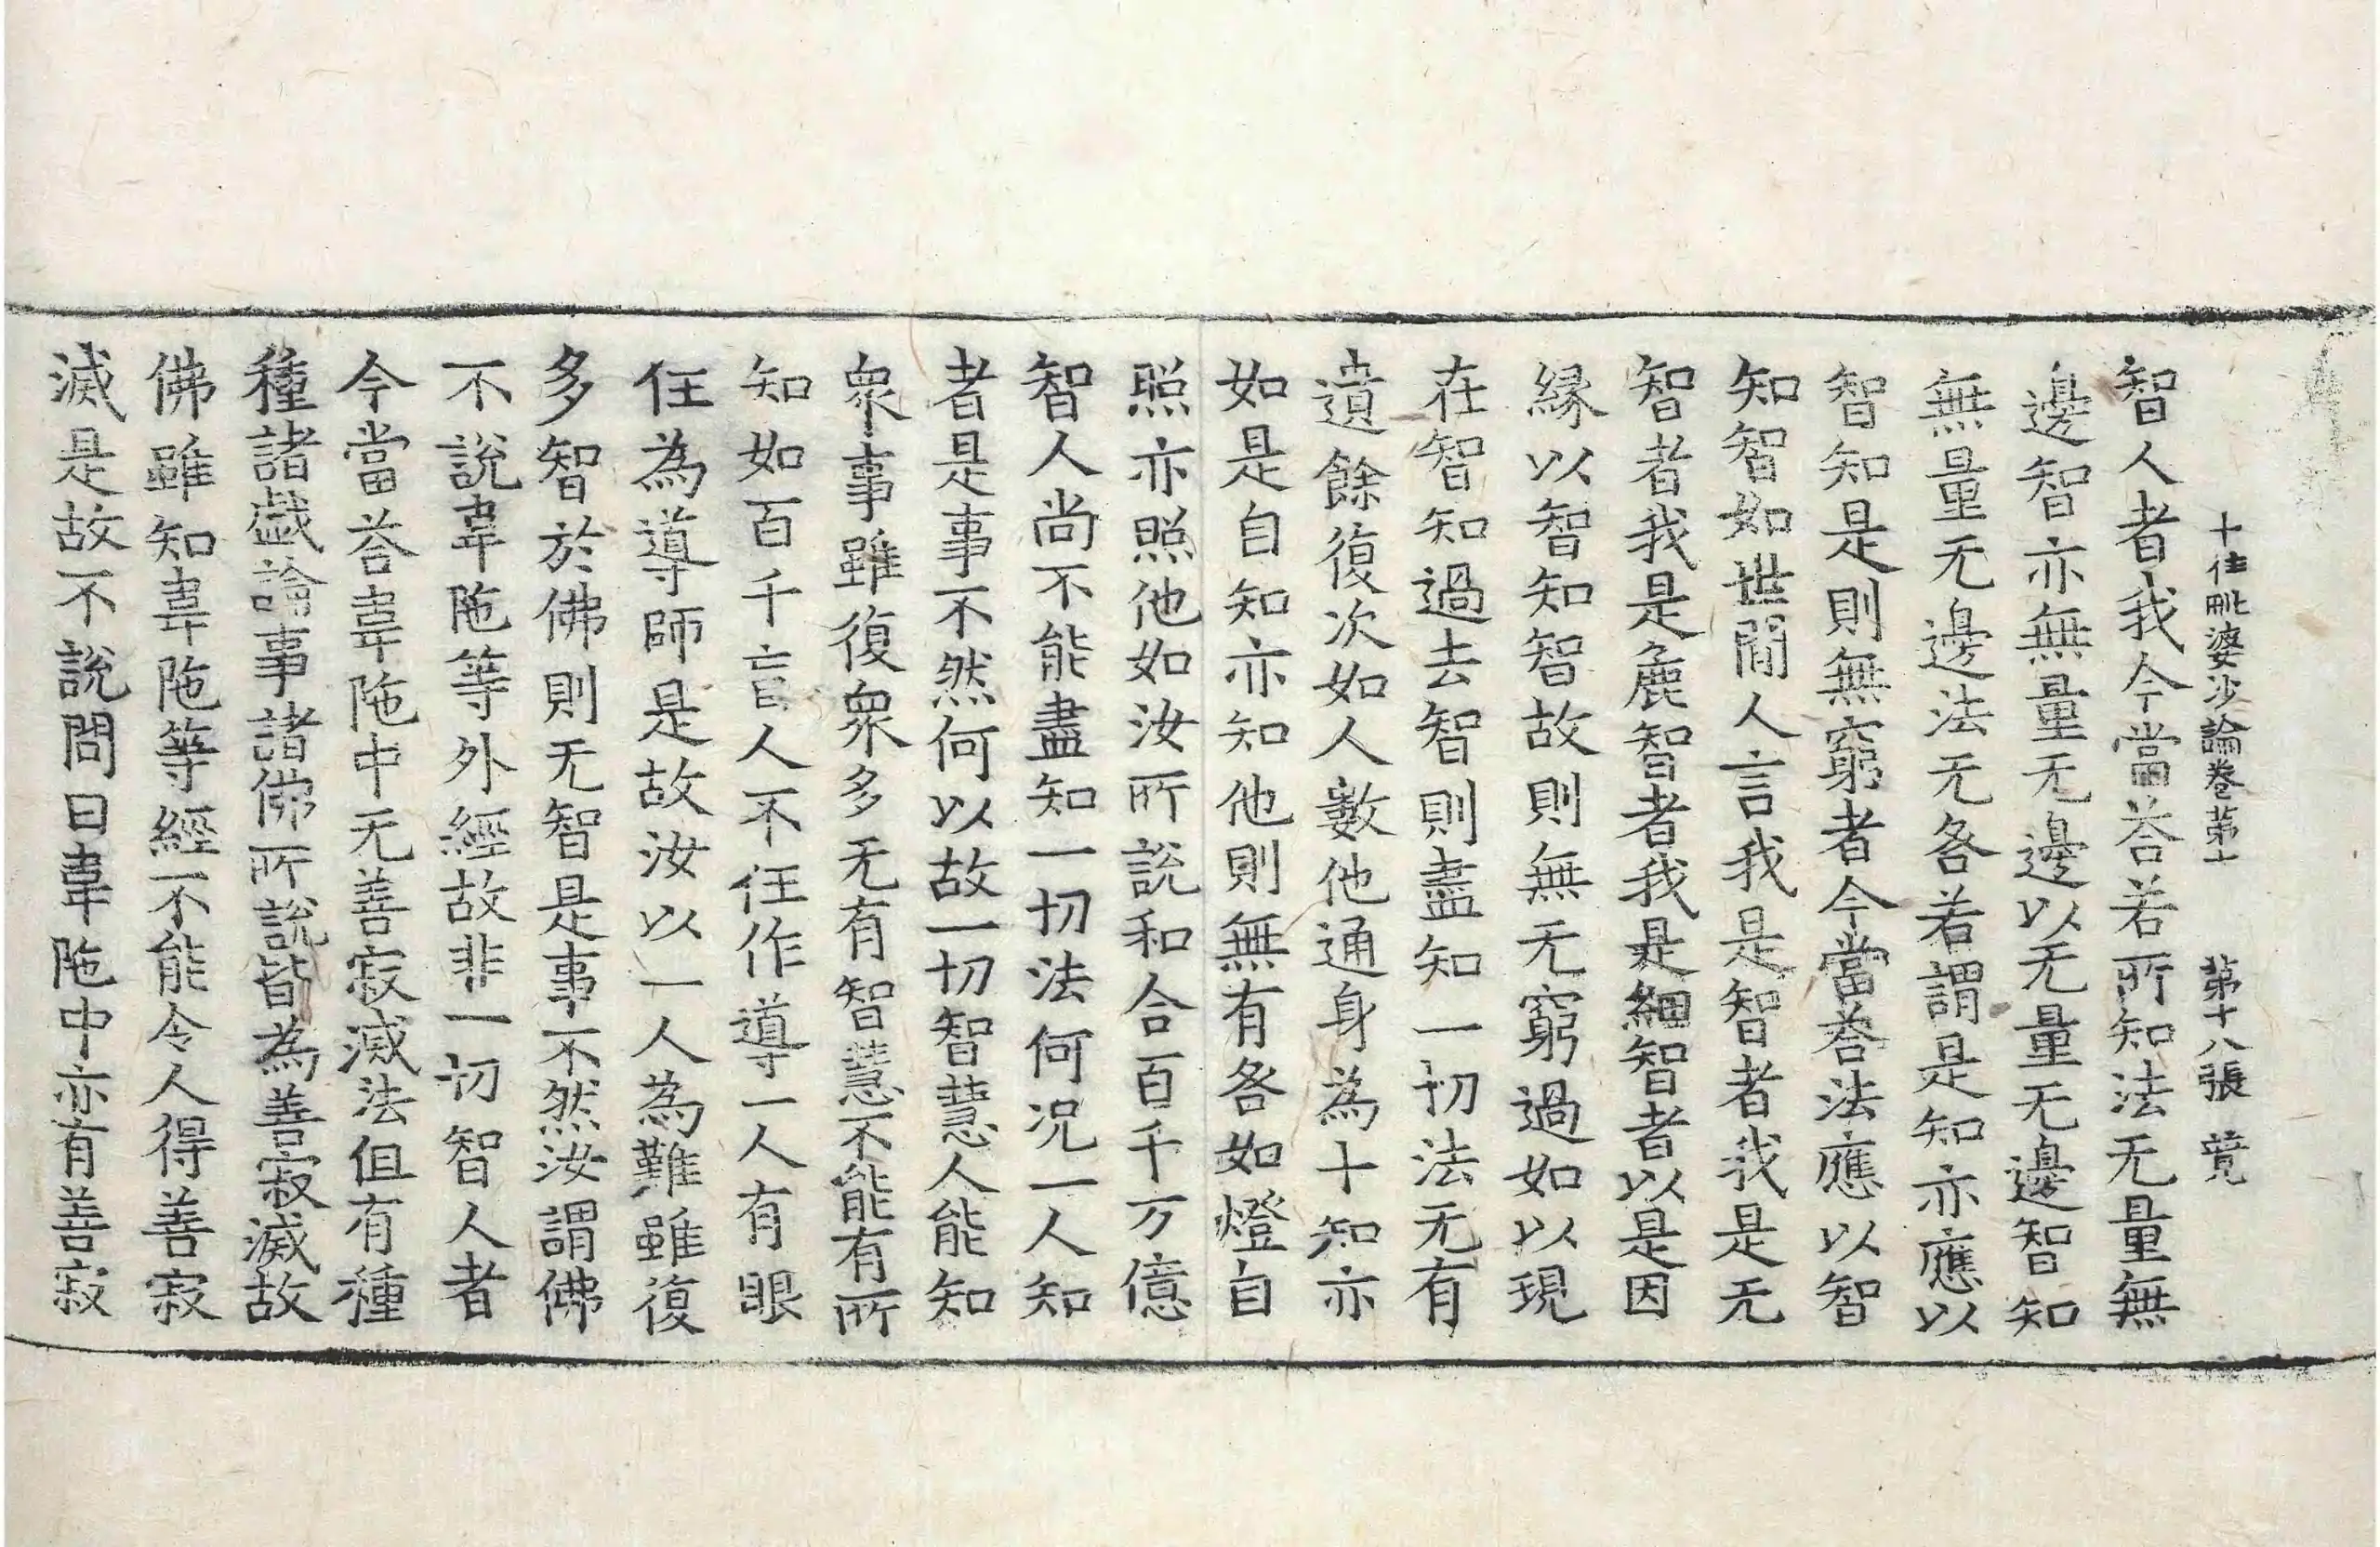 十住毗婆沙論卷第十　第十八張　竟
智人者我今當荅若所知法无量無
邊智亦無量无邊以无量无邊智知
無量无邊法无咎若謂是知亦應以
智知是則無窮者今當荅法應以智
知智如世間人言我是智者我是无
智者我是麁智者我是細智者以是因
緣以智知智故則無无窮過如以現
在智知過去智則盡知一切法无有
遺餘復次如人數他通身為十知亦
如是自知亦知他則無有咎如燈自
照亦照他如汝所說和合百千万億
智人尚不能盡知一切法何況一人知
者是事不然何以故一切智慧人能知
衆事雖復衆多无有智慧不能有所
知如百千盲人不任作導一人有眼
任為導師是故汝以一人為難雖復
多智於佛則无智是事不然汝謂佛
不說韋陁等外經故非一切智人者
今當荅韋陁中无善寂滅法但有種
種諸戲論事諸佛所說皆為善寂滅故
佛雖知韋陁等經不能令人得善寂
滅是故不說問曰韋陁中亦有善寂